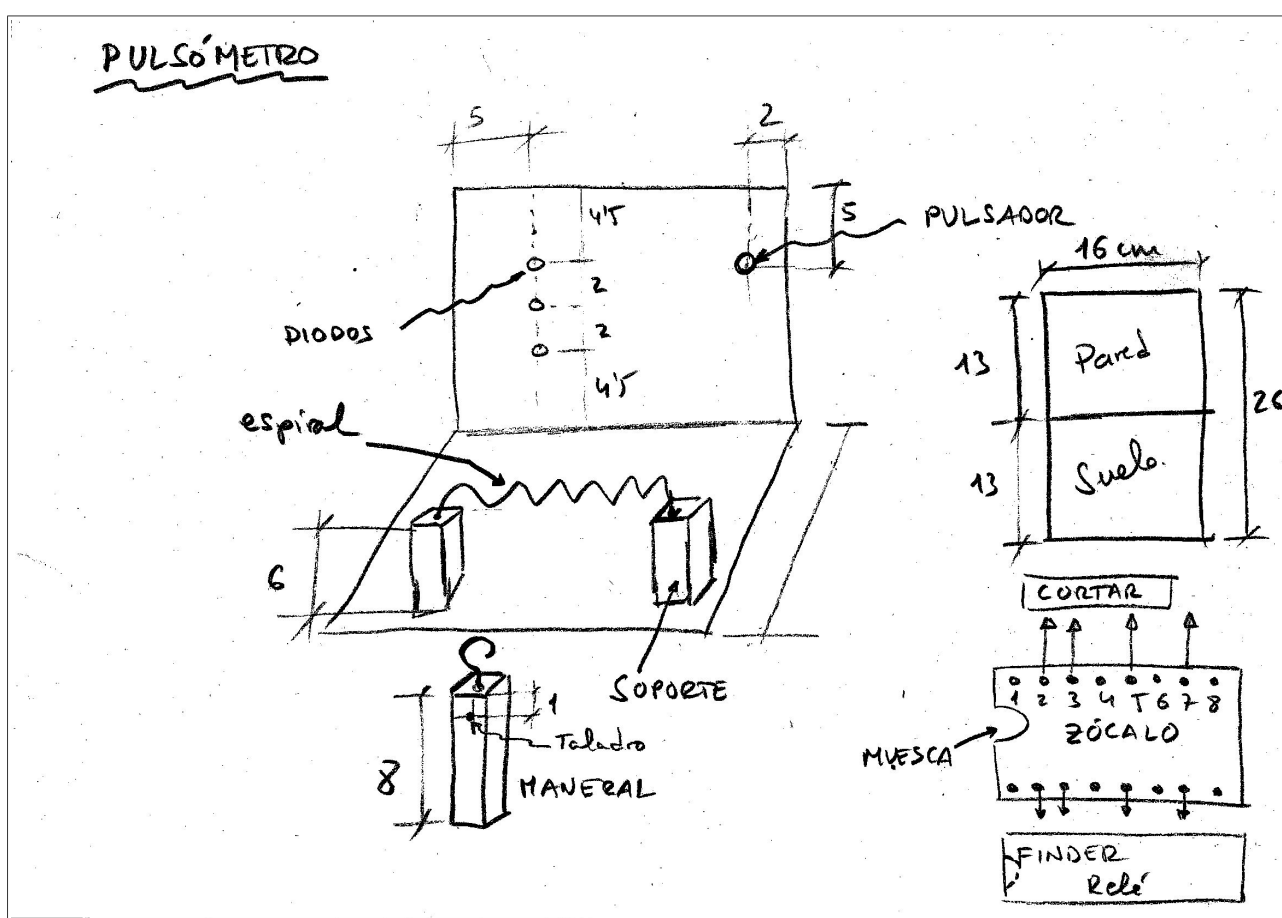 PULSÓMETRO
5
2
4'5
5
PULSADOR
2
DIODOS
2
4'5
espiral
6
SOPORTE
8
1
Taladro
MANERAL
16 cm
13
Pared
26
13
Suelo.
CORTAR
1 2 3 4 5 6 7 8
ZÓCALO
MUESCA
FINDER
Relé